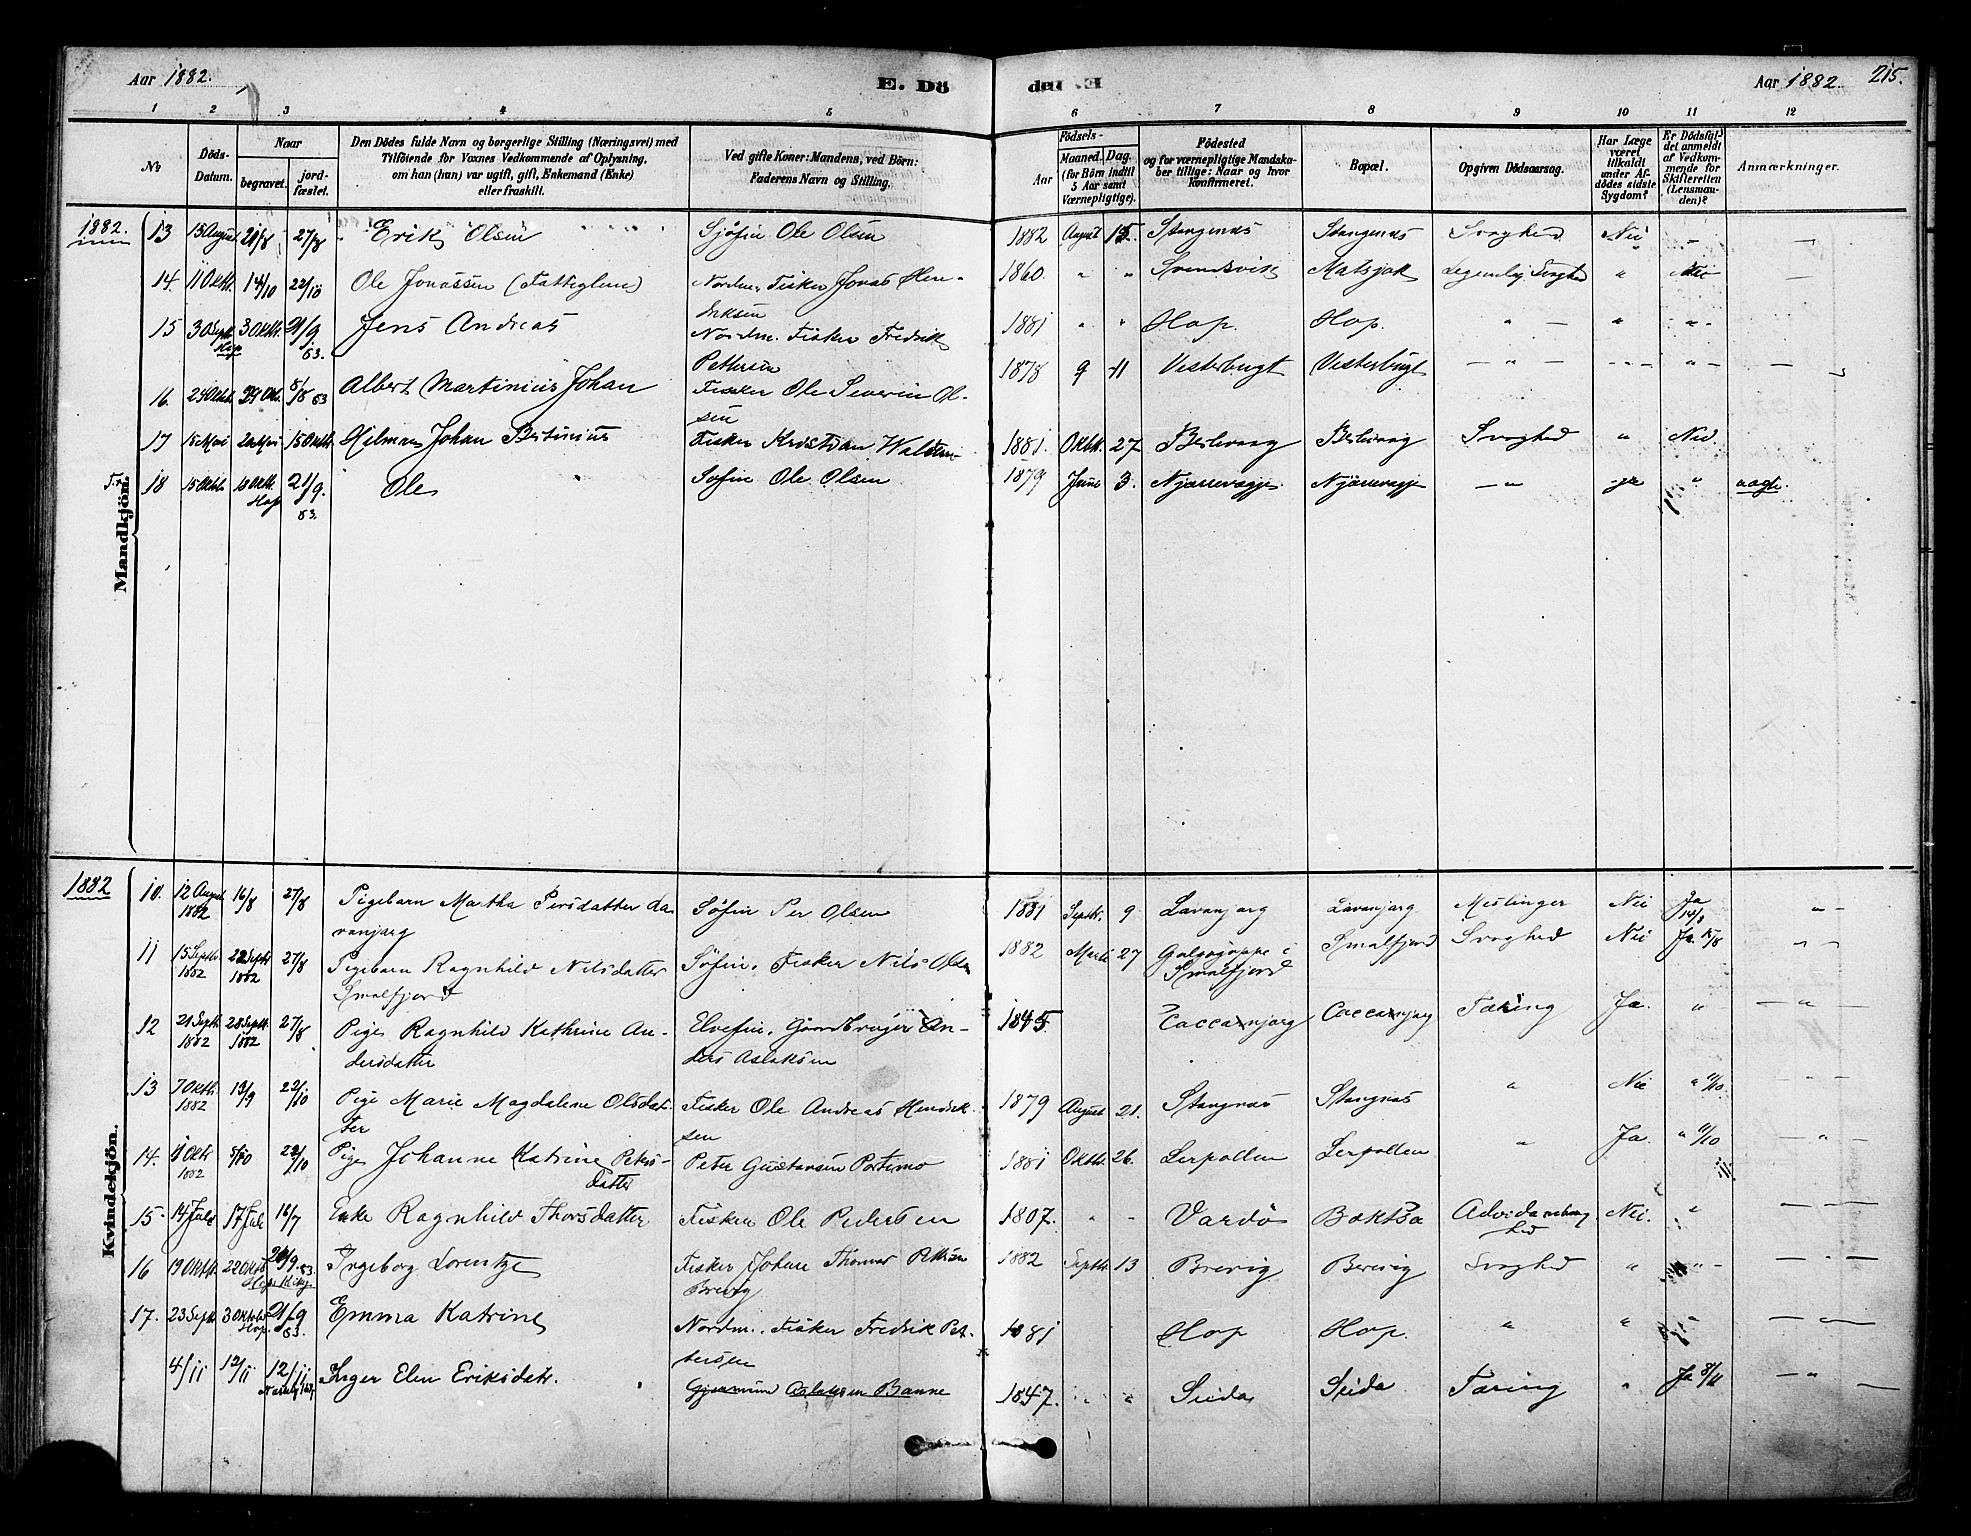 Aar 1882.
E. Dö
den E
Aar 1882. 215.
1 2 3 4 5 6 7 8 9 10 11 12
No
Döds-Datum.
Naar
begravet.
jord-fæstet.
Den Dödes fulde Navn og borgerlige Stilling (Næringsvei) med
Tilföiende for Voxnes Vedkommende af Oplysning,
om han (hun) var ugift, gift, Enkemand (Enke)
eller fraskilt.
Ved gifte Koner: Mandens, ved Börn:
Faderens Navn og Stilling.
Födsels-
Aar
Maaned. Dag.
(for Börn indtil
5 Aar samt
Værnepligtige).
Födested
og for værnepligtige Mandska-
ber tillige: Naar og hvor
konfirmeret.
Bopæl.
Opgiven Dödsaarsag.
Har Læge
været
tilkaldt
under Af-
dödes sidste
Sygdom?
Er Dödsfal-
det anmeldt
af Vedkom-
mende for
Skifteretten
(Lensman-
den)?
Anmærkninger.
Mandkjön.
1882. 13 13 August 20/8 27/8 Erik Olsen Sjöfin Ole Olsen 1882 August 15. Stangenæs Stangenæs Svaghed Nei
14. 11 Oktb. 14/10 22/10 Ole Jonassen (Fattiglem) Nordm. Fisker Jonas Hen-
driksen 1860. " " Svendsvik Matsjok Legemlig Svaghed " Nei —
15 30 Septb. 3 Oktb. 21/9 83. Jens Andreas Nordm. Fisker Fredrik
Hop Pettersen 1881 " " Hop. Hop. " — " "
16. 24 Oktb. 29 Okt. 5/8 83 Albert Martinius Johan Fisker Ole Severin Ol-
sen 1878 9 11 Vesterbugt Vesterbugt — " —
17 15 Mai 20 Mai 15 Oktb. Hilmar Johan Bertinius Fisker Kristian 1881. Oktb. 27 Berlevaag Berlevaag Svaghed " Nei.
18 15 Oktb. 18 Oktb. 21/9. 83. Ole Söfin Ole Olsen 1879 Juni 3. Njærrevagge Njærrevagge — " "
Hop
Kvindekjön.
1882 10. 12 August 1882 16/8 27/8 Pigebarn Martha Persdatter La-
vanjarg Söfin Per Olsen 1881 Septbr. 9 Lavanjarg Lavanjarg Meslinger Nei Ja 14/8 " -
11 15 Septb. 1882 22 Septb. 1882 27/8 Pigebarn Ragnhild Nilsdatter Söfin, Fisker Nils Olsen 1882 Marts 27 i Smalfjord Svaghed Nei Ja 15/8 "
Smalfjord Smalfjord
12 21 Septb. 1882 28 Septb. 1882 27/8 Pige Ragnhild Kathrine An-
dersdatter Elvefin, Gaardbruger An-
ders Aslaksen 1845 Caccanjarg Caccanjarg Tæring Ja. " — " —
13 7 Oktb. 1882 13/9 22/10 Pige Marie Magdalene Olsdat-
ter Fisker Ole Andreas Hendrik-
sen 1879 August 21. Stangnæs Stangnæs " Nei " 11/10 " -
14. 1 Oktb 1882 5/10 22/10 Pige Johanne Katrine Peters-
datter Peter Gustavsen Portimo 1881 Oktb. 26. Lerpollen Lerpollen " Ja. " 11/10 — " —
15 14 Juli 17 Juli 16/7 Enke Ragnhild Thorsdatter Fisker Ole Pedersen 1807. " - Vardö Boktsa Nei. " — — —
16 19 Oktb. 22 Oktb. 21/9. 83. Ingeborg Lorentze Fisker Johan Thomas Pettersen
Brevig 1882 Septb. 13 Brevig Brevig Svaghed " " - — - —
17. 23 Septb. 3 Oktob. 21/9 83. Emma Katrine Nordm. Fisker Fredrik Pet-
Hop. tersen 1881 Hop Hop. " " " — — —
4/11 12/11 12/11 Inger Elen Eriksdatr. Aslaksen Banne 1847. " " Seida Seida Tæring " Ja 8/11 — " —